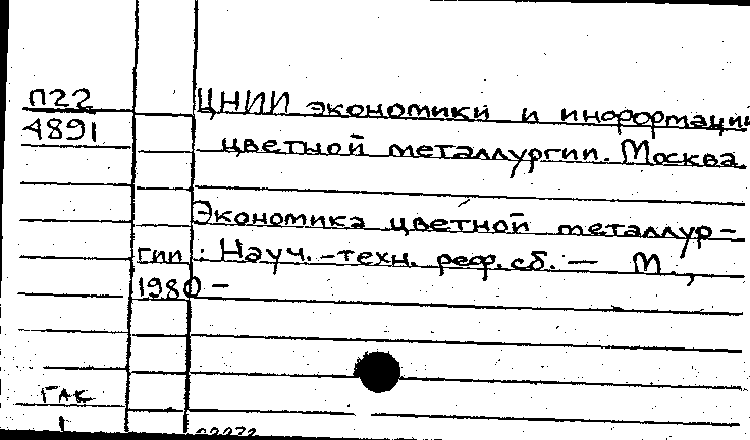 П22
4891
ЦНИИ экономики и информации
цветной металлургии. Москва.
Экономика цветной металлур-
гии : Науч.-техн. реф. сб. — М.,
1980 -
ГАК
1